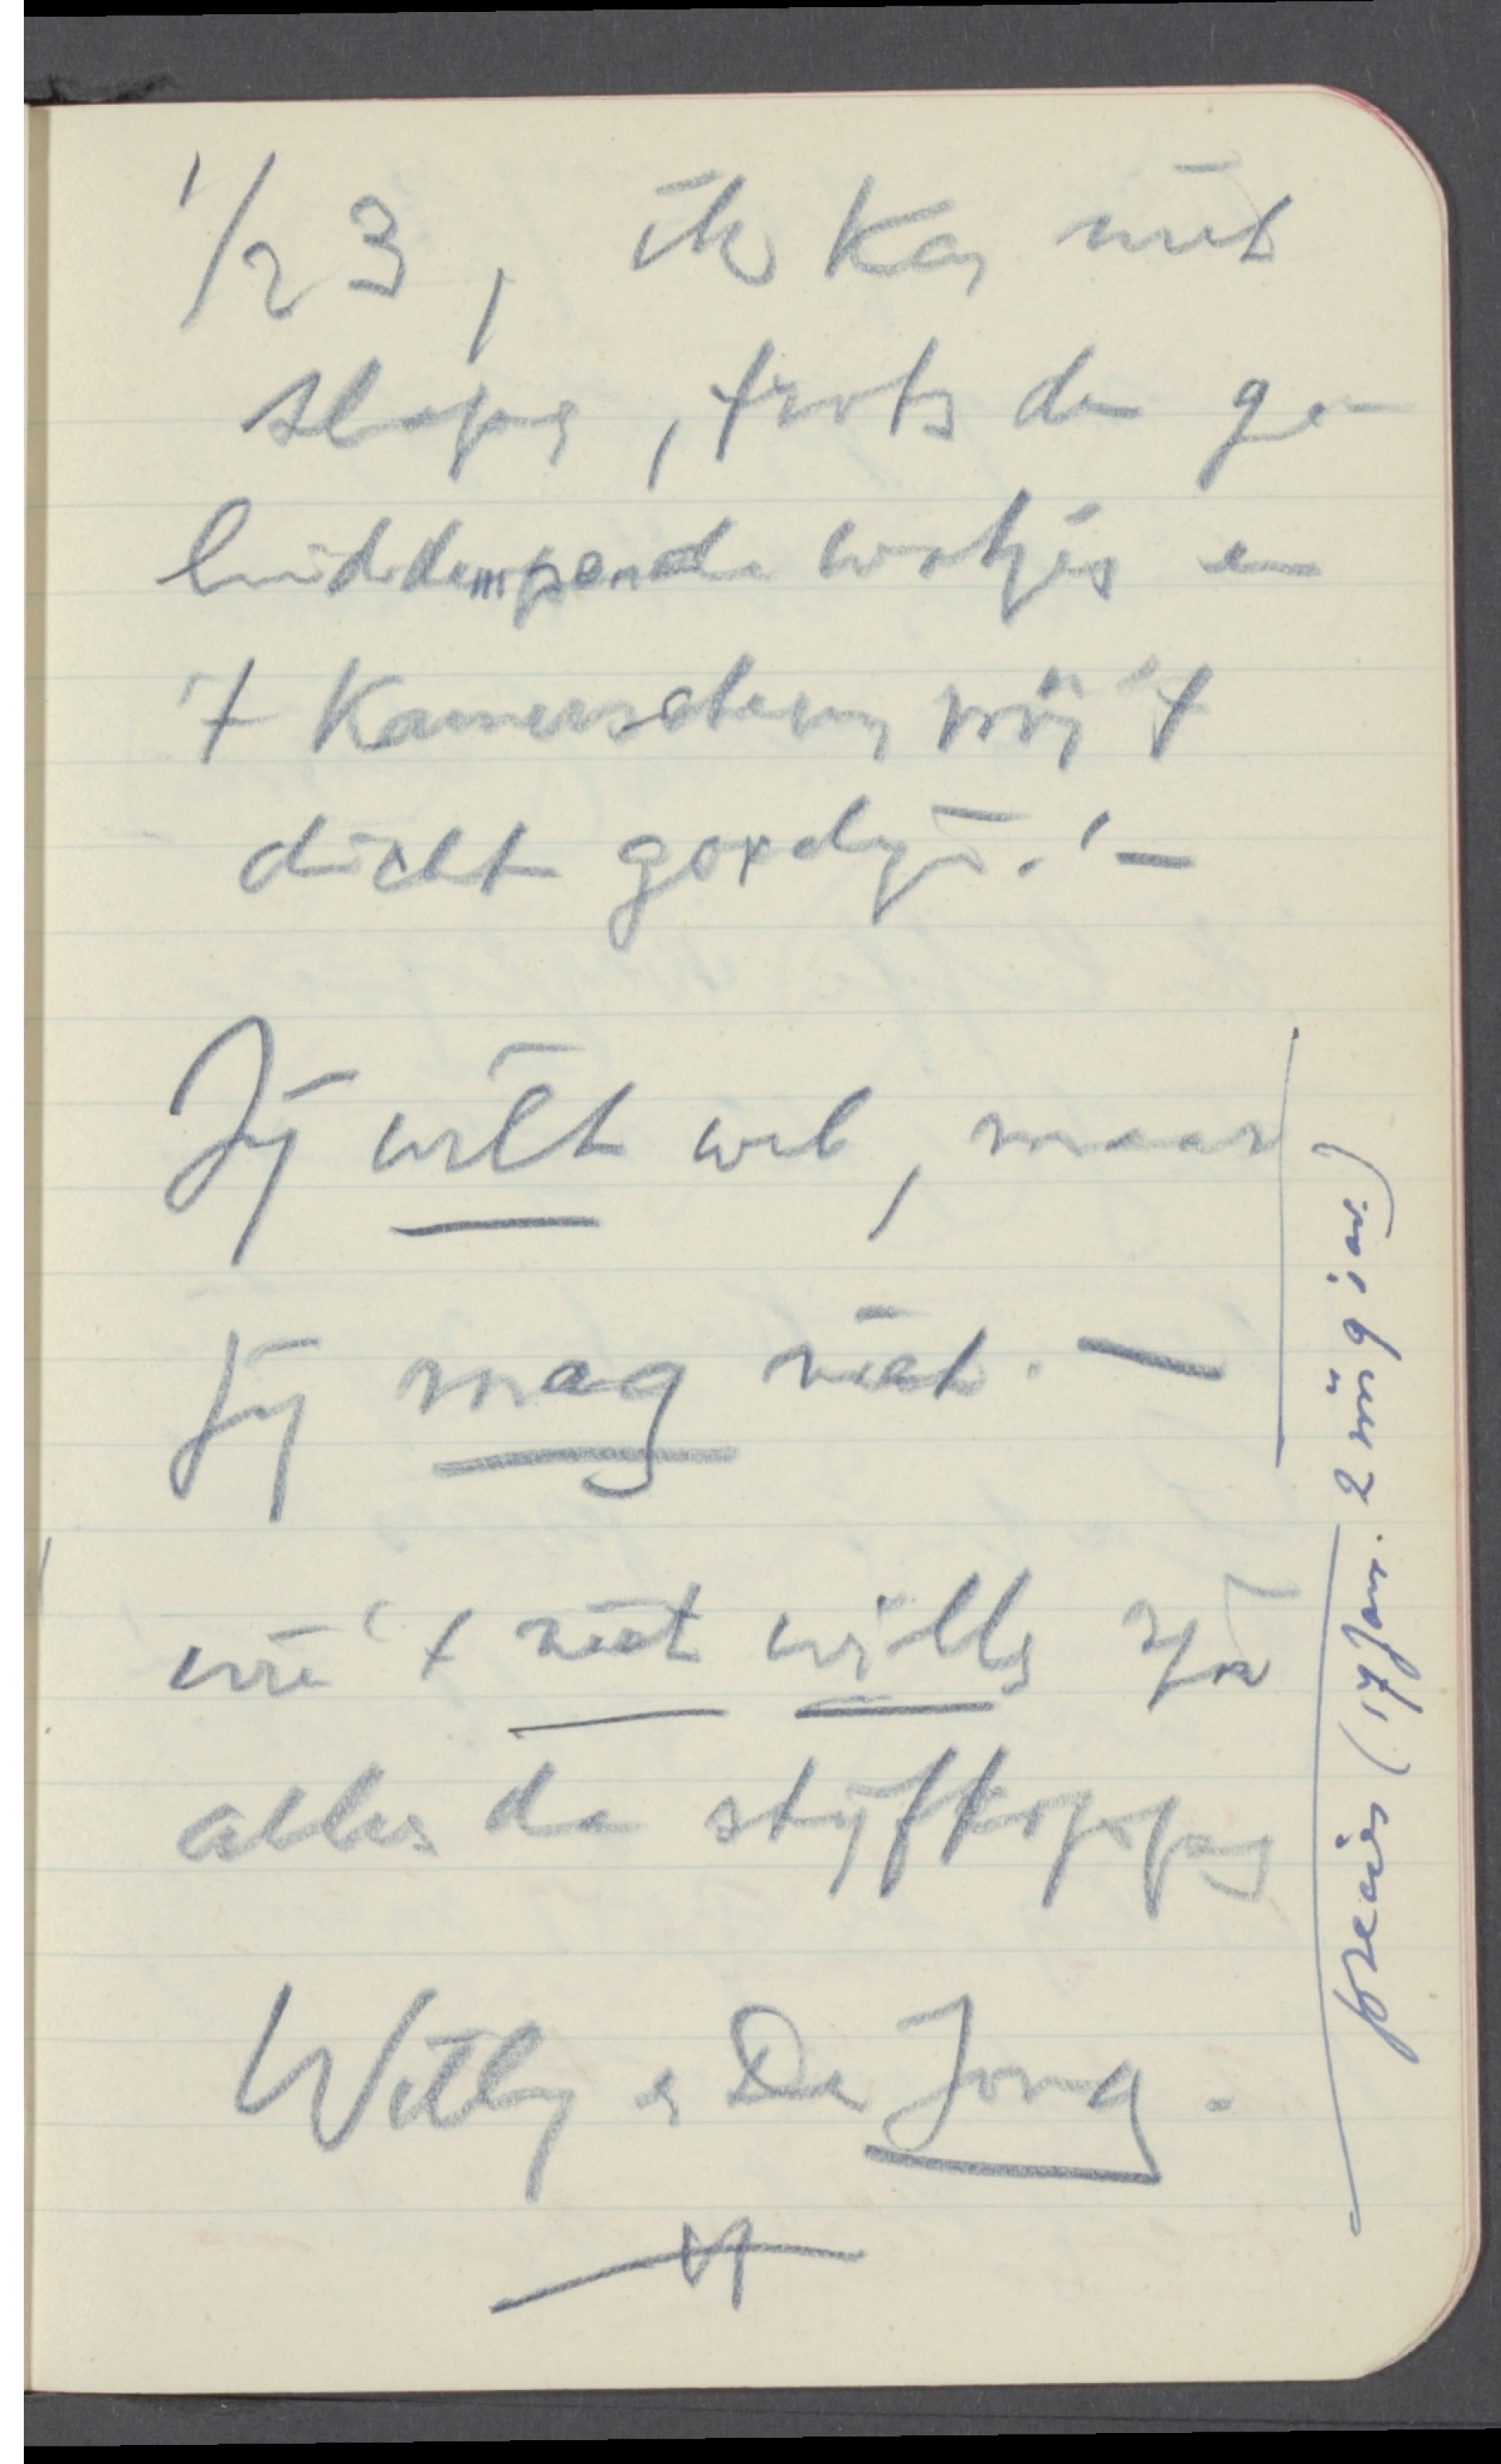 1/2 3, ik kan niet
slapen, trots de ge
luiddempende watjes en
't kamerscherm vóór 't
dicht gordijn. ' —
Jij wilt wel, maar
jij mag niet. —
wie 't niet willen zijn
alles de stijfkoppen
Willy en De Jong.
precies (17 Jan. 2 uur)